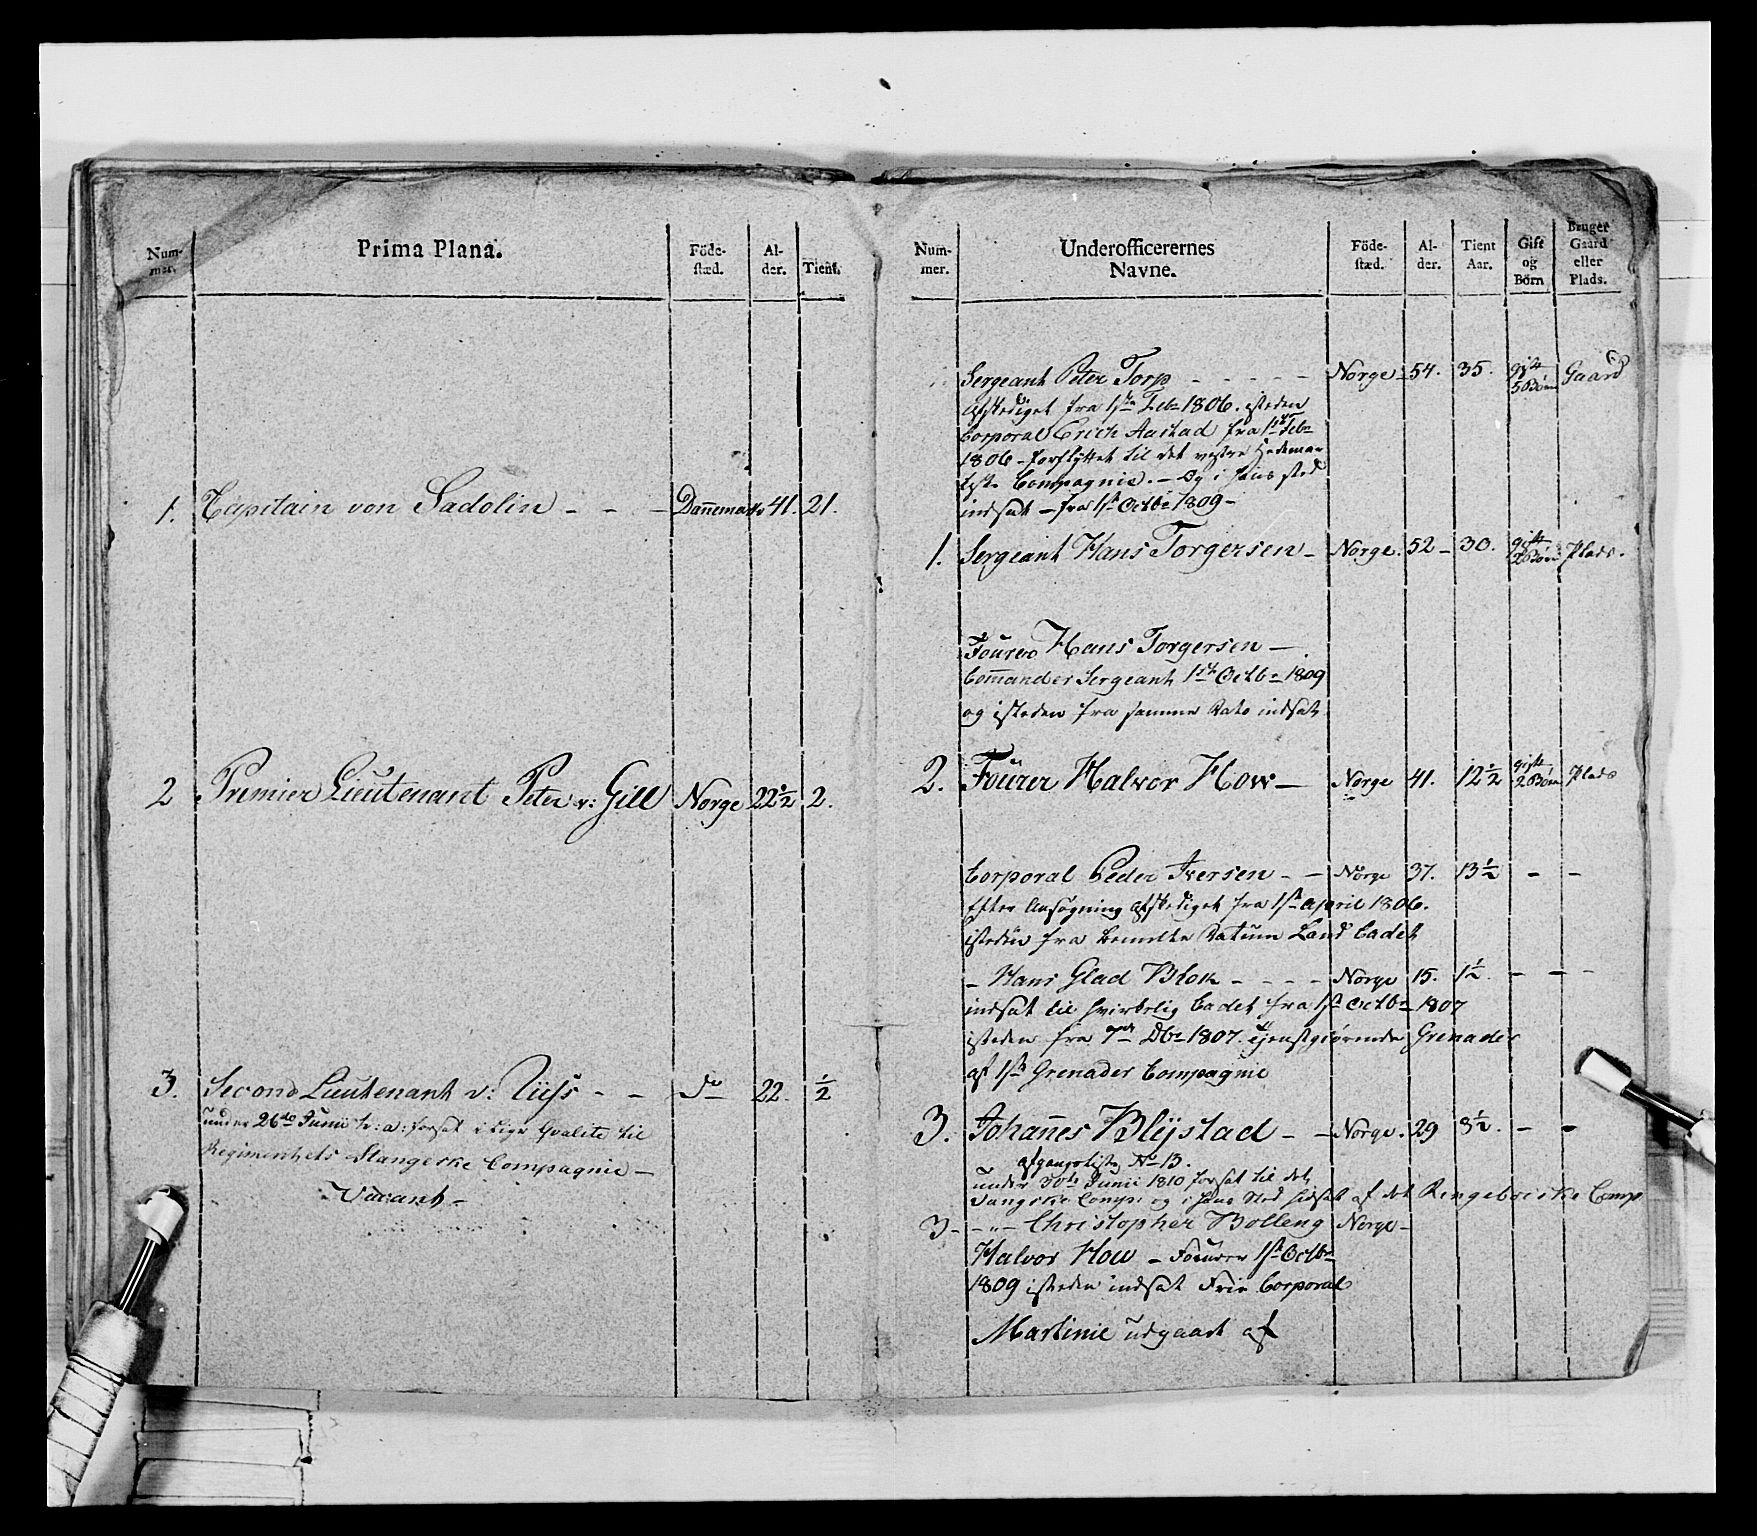 Num-
mer.
Prima Plana.
Föde-
stæd.
Al-
der.
Tient.
1. Capitain von Sadolin - - - Dannemark 41. 21.
2 Premier Lieutenant Peter v: Gill Norge 22½ 2.
3. Second Lieutenant v: - - do 22. ½
under 26de Junii h: a: forsat i lige Qvalite til
Regimentets Stangeske Compagnie -
Vacant -
Num-
mer.
Underofficerernes
Navne.
Föde-
stæd.
Al-
der.
Tient
Aar.
Gift
og
Børn
Bruger
Gaard
eller
Plads.
Sergeant Peter Torp - - - - - Norge - 54. 35. gift 5 Børn Gaard
afskediget fra 1ste Febr 1806. isteden
Corporal Erich Aastad fra 1ste Febr
1806 - forflyttet til det vestre Hedemar
kske Compagnie. - Og i hans sted
indsat - fra 1ste Octbr 1809 -
1. Sergeant Hans Torgersen - Norge. 52 - 30. gift 2 Børn Plads.
Fourer Hans Torgersen -
Commander Sergeant 1ste Octbr 1809
og isteden fra samme Dato indsat
2. Fourer Halvor How - Norge 41. 12½ gift 2 Børn Plads
Corporal Peder Iversen - - Norge 37. 13½ - -
efter Ansøgning afskediget fra 1ste April 1806.
isteden fra bemelte Datum Land Cadet
- Hans Glad Blok - - - - Norge 15. 1½. - - -
indsat til virkelig Cadet fra 1ste Octbr 1807
isteden fra 7de Dbr 1807. tjenstgiørende Grenader
af 1ste Grenader Compagnie
3. Johannes Blystad - - Norge. 29 8½. - -
afgangsliste No 13.
under 30te Junii 1810 forsat til det
Vangske Comp: og i hans Sted hidsat af det Ringeboeske Comp
3 - - " - Christopher Bolleng Norge -
Halvor How - Fourer 1ste Octbr
1809 isteden indsat Frie Corporal
Martinie udgaaet af